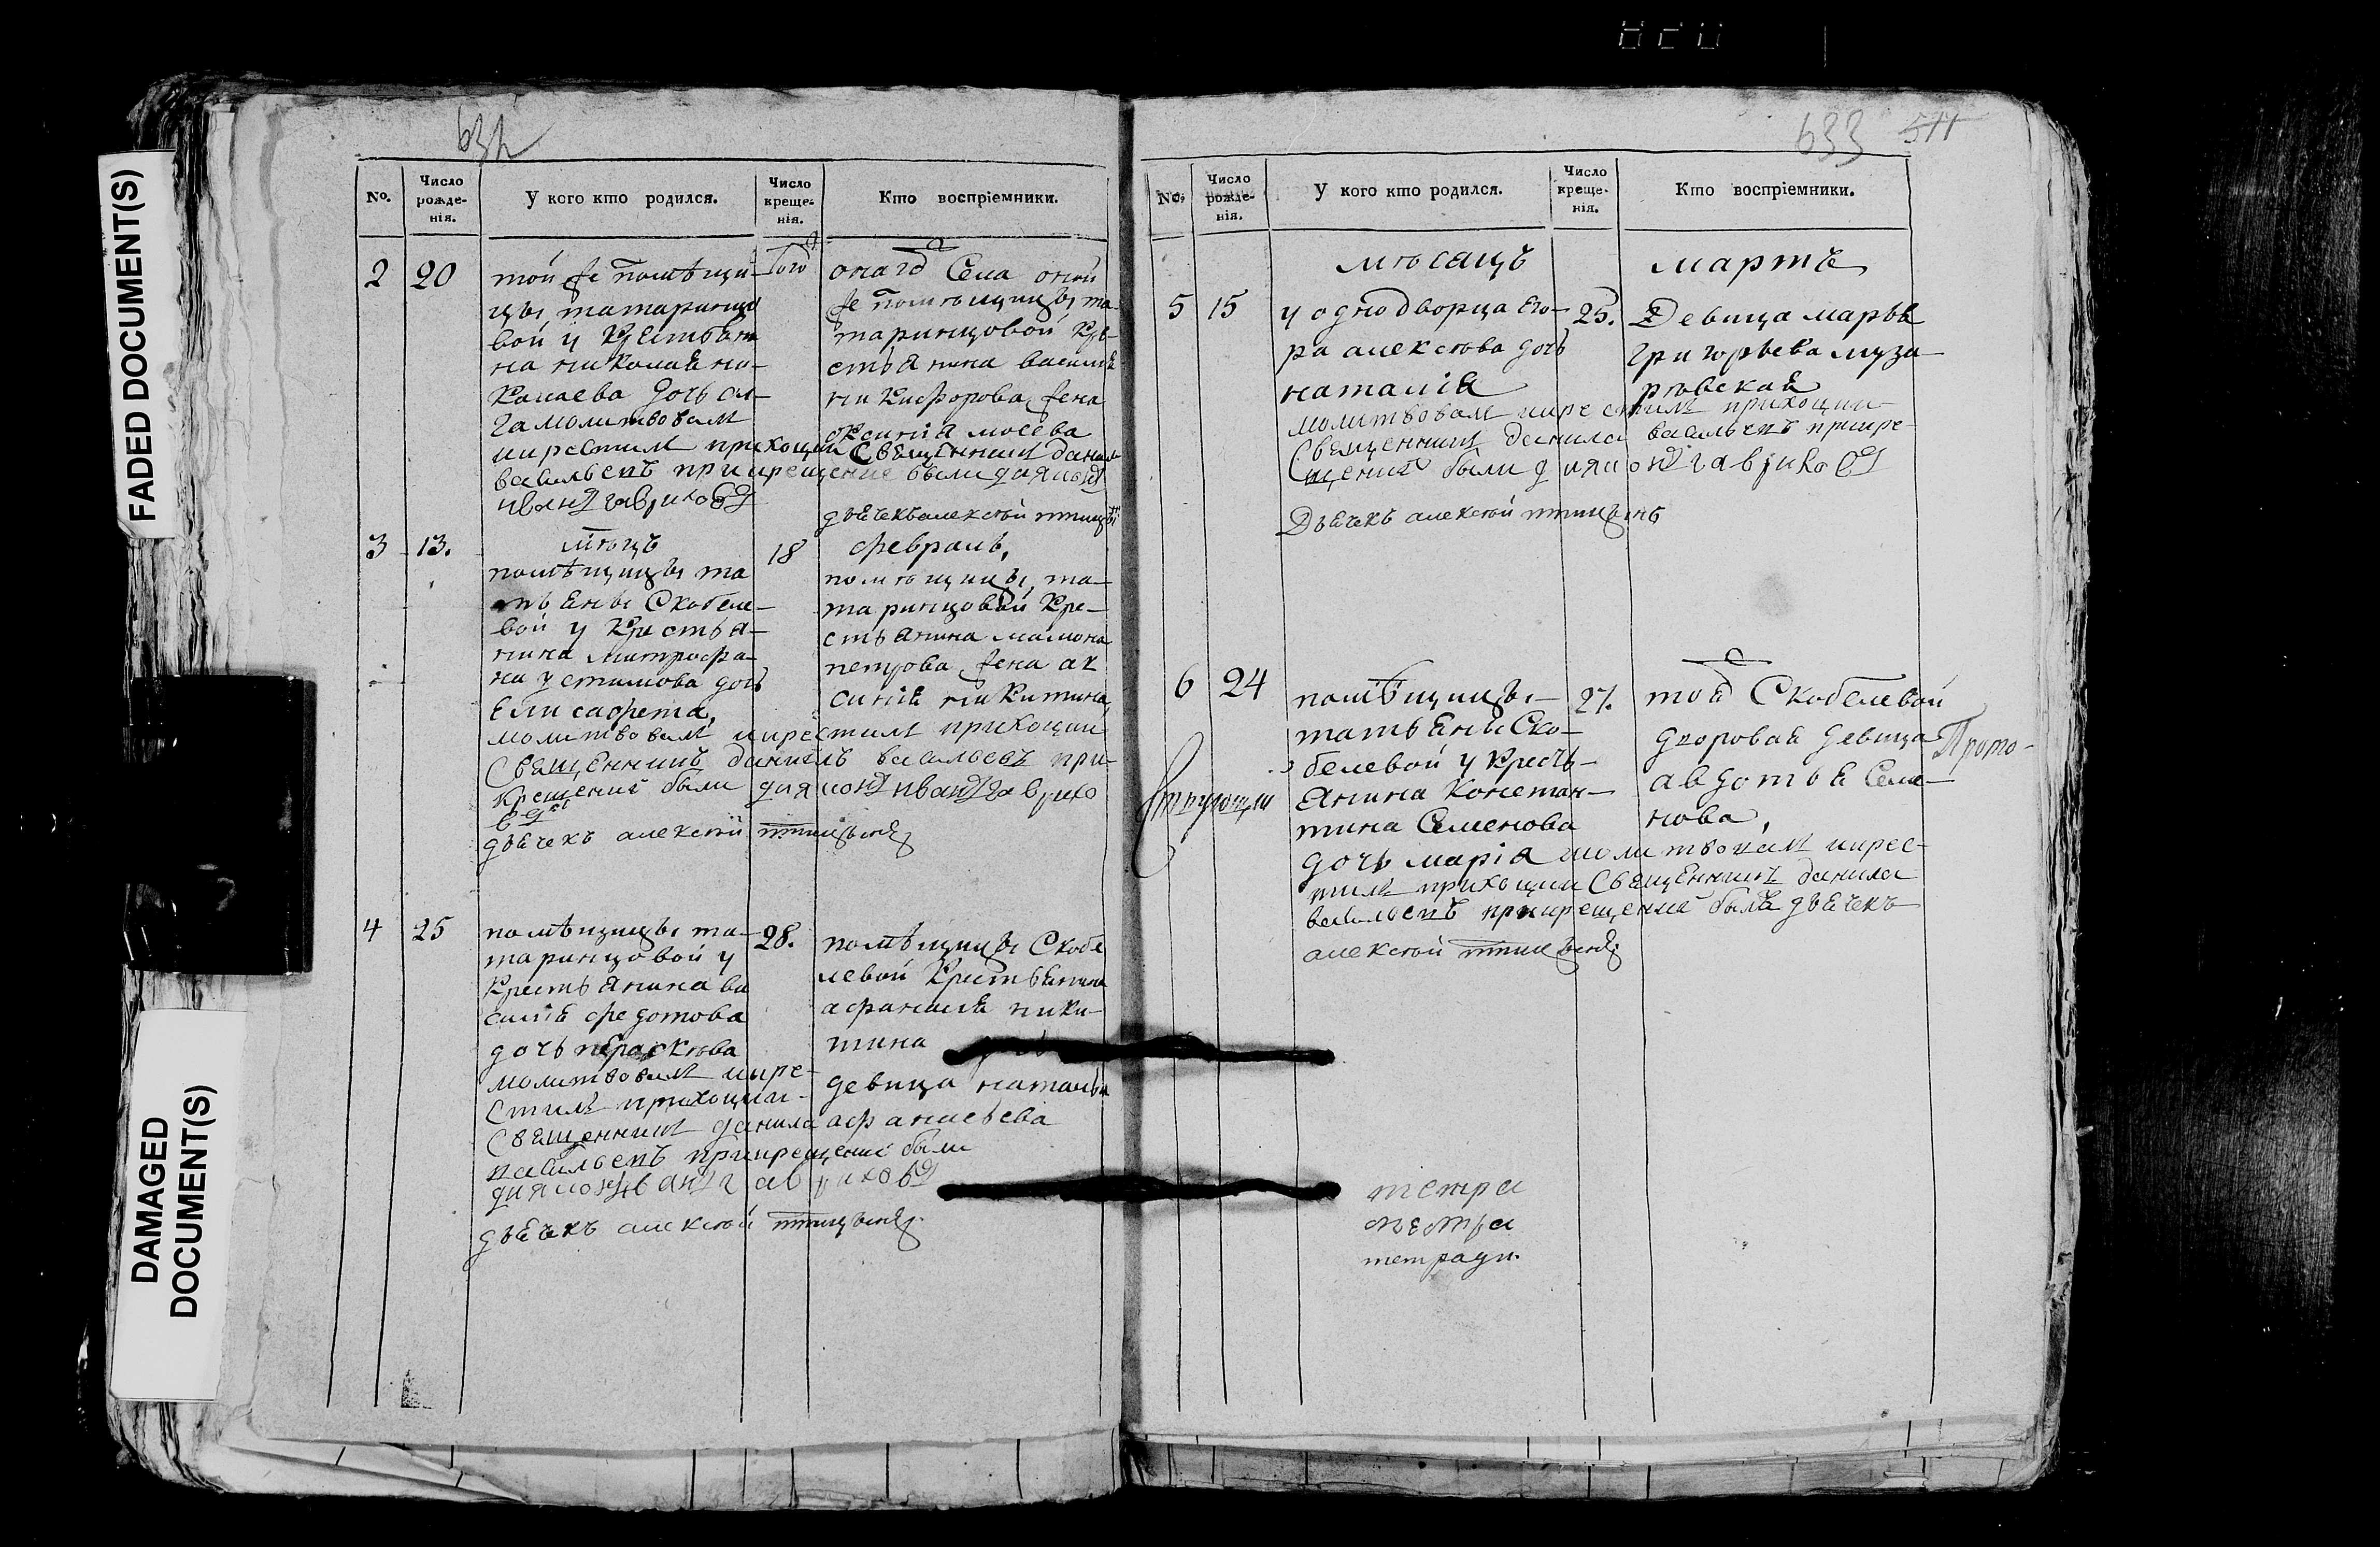 FADED DOCUMENT(S)
DAMAGED
DOCUMENT(S)
632
No.
Число рожде-нія.
У кого кто родился.
Число креще-нія.
Кто воспріемники.
2
20
той же помѣщи-
цы татаринцо
вой у крестьяни
на николая но-
дочь ол-
га молитвовалъ
икрестилъ приходии священникъ данила
васильевъ прикрещение были диаконъ
иванъ гавриловъ
того
онаго села оной
же помѣщицы та-
таринцовой кре-
стьянина василія
никифорова жена
ксинія мосева
дьячекъ алексѣй птицынъ
3
13.
мѣсцъ
помѣщицы та
тьяны скобеле-
вой у крестья-
нина митрофа-
на устимова дочь
елисафета,
молитвовалъ икрестилъ приходии
священникъ данилъ васильевъ при-
крещении были диаконъ иванъ гаврило
въ
дьячекъ алексѣй птицынъ
18
февраль,
помѣщицы, та-
таринцовой кре-
стьянина мамона
петрова жена ак
синія никитина
4
25
помѣщицы та-
таринцовой у
крестьянина ва
силія федотова
дочь параскева
молитвовалъ икре-
стилъ приходии-
священникъ данила
васильевъ прикрещении были
диаконъ иванъ гавриловъ
дьячекъ алексѣй птицынъ.
28.
помѣщицы скобе
левой крестьянина
афанасія ники-
тина
девица наталья
афанасьева
633 511
No.
Число рожде-нія.
У кого кто родился.
Число креще-нія.
Кто воспріемники.
мѣсяцъ мартъ
5
15
у однодворца его-
ра алексѣева дочь
наталія
молитвовалъ икрестилъ приходии
священникъ данила васильевъ прикре-
щении были диаконъ гавриловъ
дьячекъ алексѣй птицынъ
25.
девица марья
григорьева муза-
рѣвская
6
24
помѣщицы-
татьяны ско-
белевой у кресть-
янина констан-
тина семенова
дочь марія молитвовалъ икрес-
тилъ приходии священникъ данила
васильевъ прикрещении былъ дьячекъ
алексѣй птицынъ
27.
тоя скобелевой
дворовая девица
авдотья семе-
нова,
Прото-
тетра
тетра
тетради.